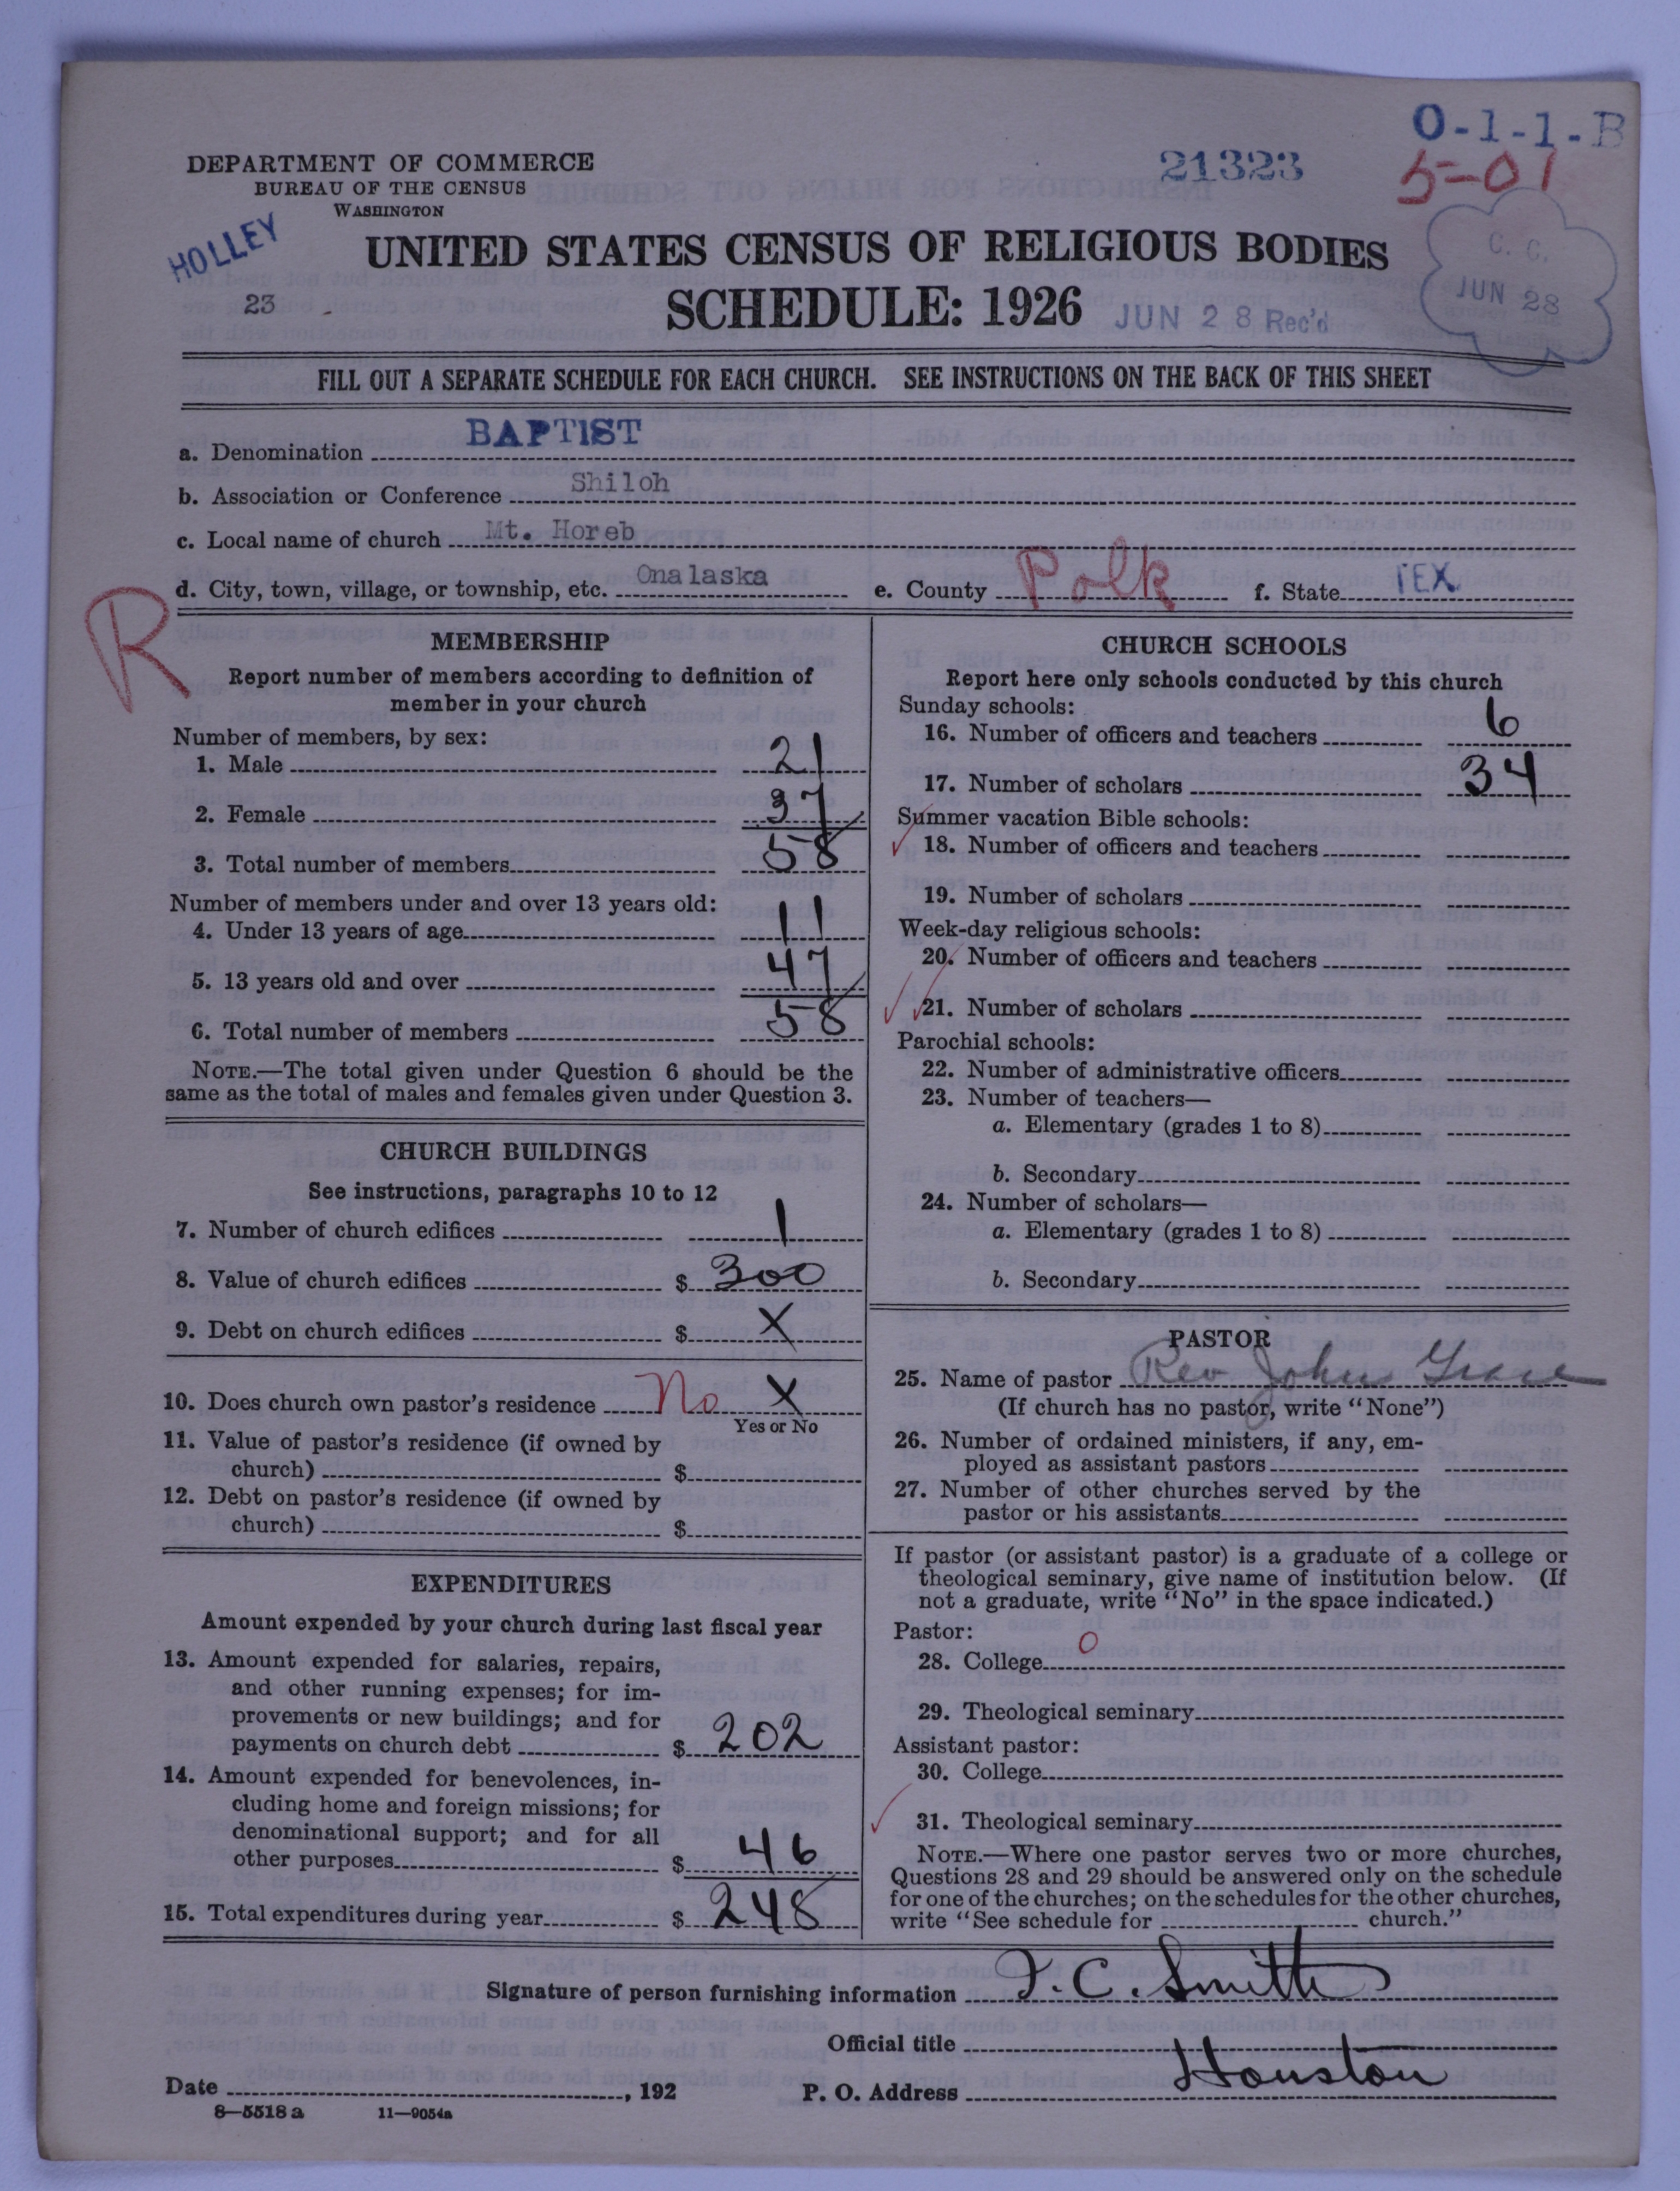 0-1-1-B
21323
5-01
DEPARTMENT OF COMMERCE
BUREAU OF THE CENSUS
WASHINGTON
HOLLEY
23
C. C.
JUN 28
UNITED STATES CENSUS OF RELIGIOUS BODIES
SCHEDULE: 1926 JUN 28 Rec'd
FILL OUT A SEPARATE SCHEDULE FOR EACH CHURCH. SEE INSTRUCTIONS ON THE BACK OF THIS SHEET
a. Denomination BAPTIST
b. Association or Conference Shiloh
c. Local name of church Mt. Horeb
d. City, town, village, or township, etc. Onalaska e. County Polk f. State TEX.
R
MEMBERSHIP
Report number of members according to definition of
member in your church
Number of members, by sex:
1. Male 21
2. Female 37
3. Total number of members 58
Number of members under and over 13 years old:
4. Under 13 years of age 11
5. 13 years old and over 47
6. Total number of members 58
NOTE.—The total given under Question 6 should be the
same as the total of males and females given under Question 3.
CHURCH BUILDINGS
See instructions, paragraphs 10 to 12
7. Number of church edifices 1
8. Value of church edifices $ 300
9. Debt on church edifices $ X
10. Does church own pastor's residence No X
Yes or No
11. Value of pastor's residence (if owned by
church) $
12. Debt on pastor's residence (if owned by
church) $
EXPENDITURES
Amount expended by your church during last fiscal year
13. Amount expended for salaries, repairs,
and other running expenses; for im-
provements or new buildings; and for
payments on church debt $ 202
14. Amount expended for benevolences, in-
cluding home and foreign missions; for
denominational support; and for all
other purposes $ 46
15. Total expenditures during year $ 248
CHURCH SCHOOLS
Report here only schools conducted by this church
Sunday schools:
16. Number of officers and teachers 6
17. Number of scholars 34
Summer vacation Bible schools:
18. Number of officers and teachers
19. Number of scholars
Week-day religious schools:
20. Number of officers and teachers
21. Number of scholars
Parochial schools:
22. Number of administrative officers
23. Number of teachers—
a. Elementary (grades 1 to 8)
b. Secondary
24. Number of scholars—
a. Elementary (grades 1 to 8)
b. Secondary
PASTOR
25. Name of pastor Rev John Grace
(If church has no pastor, write "None")
26. Number of ordained ministers, if any, em-
ployed as assistant pastors
27. Number of other churches served by the
pastor or his assistants
If pastor (or assistant pastor) is a graduate of a college or
theological seminary, give name of institution below. (If
not a graduate, write "No" in the space indicated.)
Pastor:
28. College 0
29. Theological seminary
Assistant pastor:
30. College
31. Theological seminary
NOTE.—Where one pastor serves two or more churches,
Questions 28 and 29 should be answered only on the schedule
for one of the churches; on the schedules for the other churches,
write "See schedule for church."
Signature of person furnishing information J. C. Smith
Official title
Date , 192 P. O. Address Houston
8—5518a 11—9054a